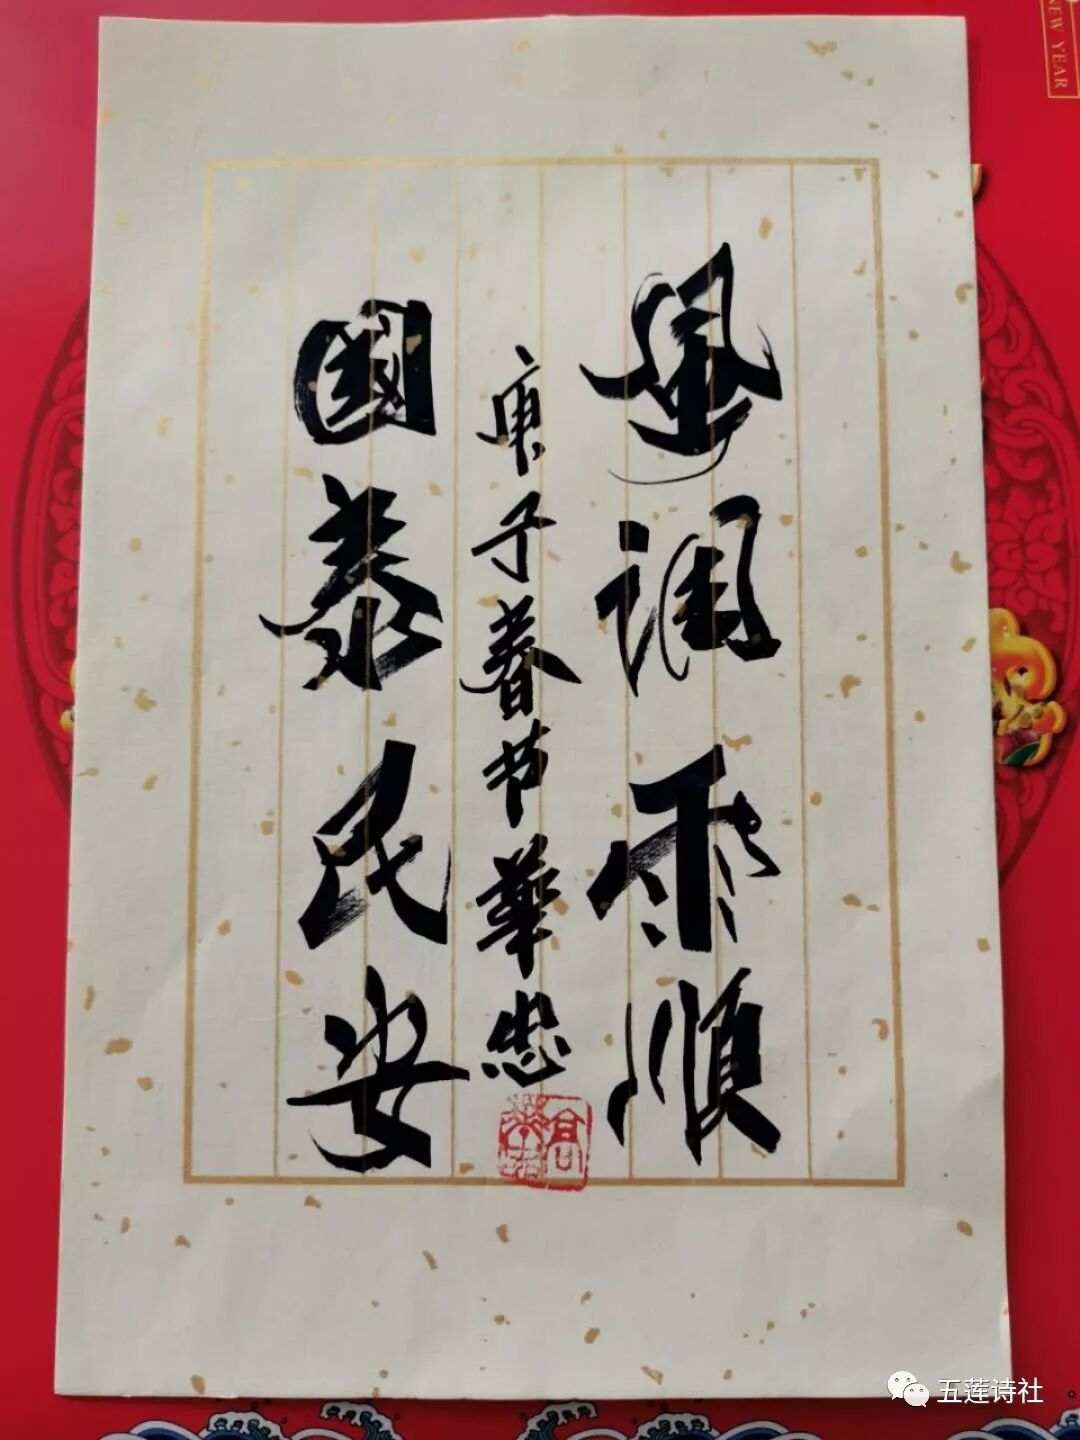 風调雨順
庚子春节華忠
國泰民安
NEW YEAR
五莲诗社